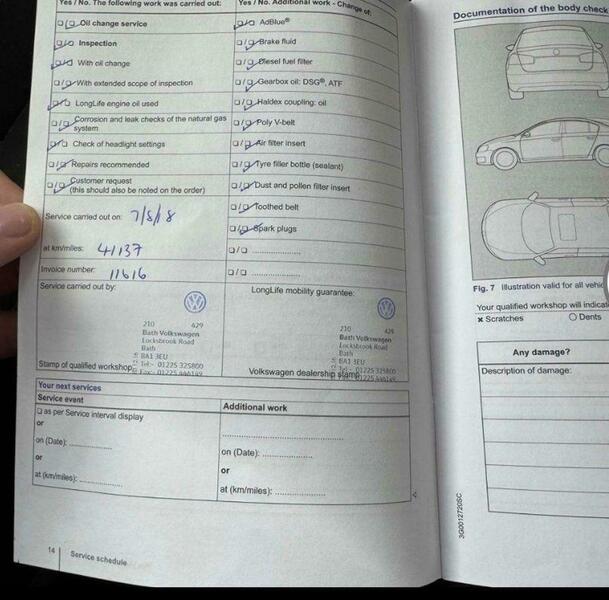 Yes / No. The following work was carried out:
Yes / No. Additional work - Change of:
Oil change service
AdBlue®
Inspection
Brake fluid
With oil change
Diesel fuel filter
With extended scope of inspection
Gearbox oil: DSG®, ATF
LongLife engine oil used
Haldex coupling: oil
Corrosion and leak checks of the natural gas
system
Poly V-belt
Check of headlight settings
Air filter insert
Repairs recommended
Tyre filler bottle (sealant)
Customer request
(this should also be noted on the order)
Dust and pollen filter insert
Toothed belt
Service carried out on: 7/8/18
Spark plugs
at km/miles: 41137
Invoice number: 11616
Service carried out by:
210 629
Bath Volkswagen
Locksbrook Road
Bath
BA1 3EU
Tel:- 01225 325800
Stamp of qualified workshop
LongLife mobility guarantee:
210 629
Bath Volkswagen
Locksbrook Road
Bath
BA1 3EU
Tel:- 01225 325800
Volkswagen dealership stamp
Your next services
Service event
Additional work
as per Service interval display
or
on (Date):
or
at (km/miles):
on (Date):
or
at (km/miles):
14 Service schedule
Documentation of the body check
Fig. 7 Illustration valid for all
Your qualified workshop will
Scratches Dents
Any damage?
Description of damage:
3G0012720SC